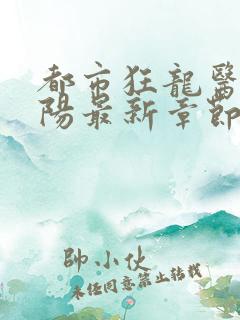 都市狂龍醫
陽最新章節
帥小伙
未經同意禁止轉載